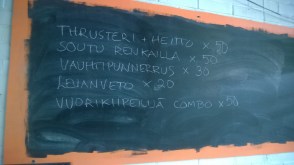 THRUSTERI + HEITTO x 50
SOUTU RENKAILLA x 50
VAUHTIPUNNERRUS x 30
LEUANVETO x 20
VUORIKIIPEILIJÄ COMBO x 50